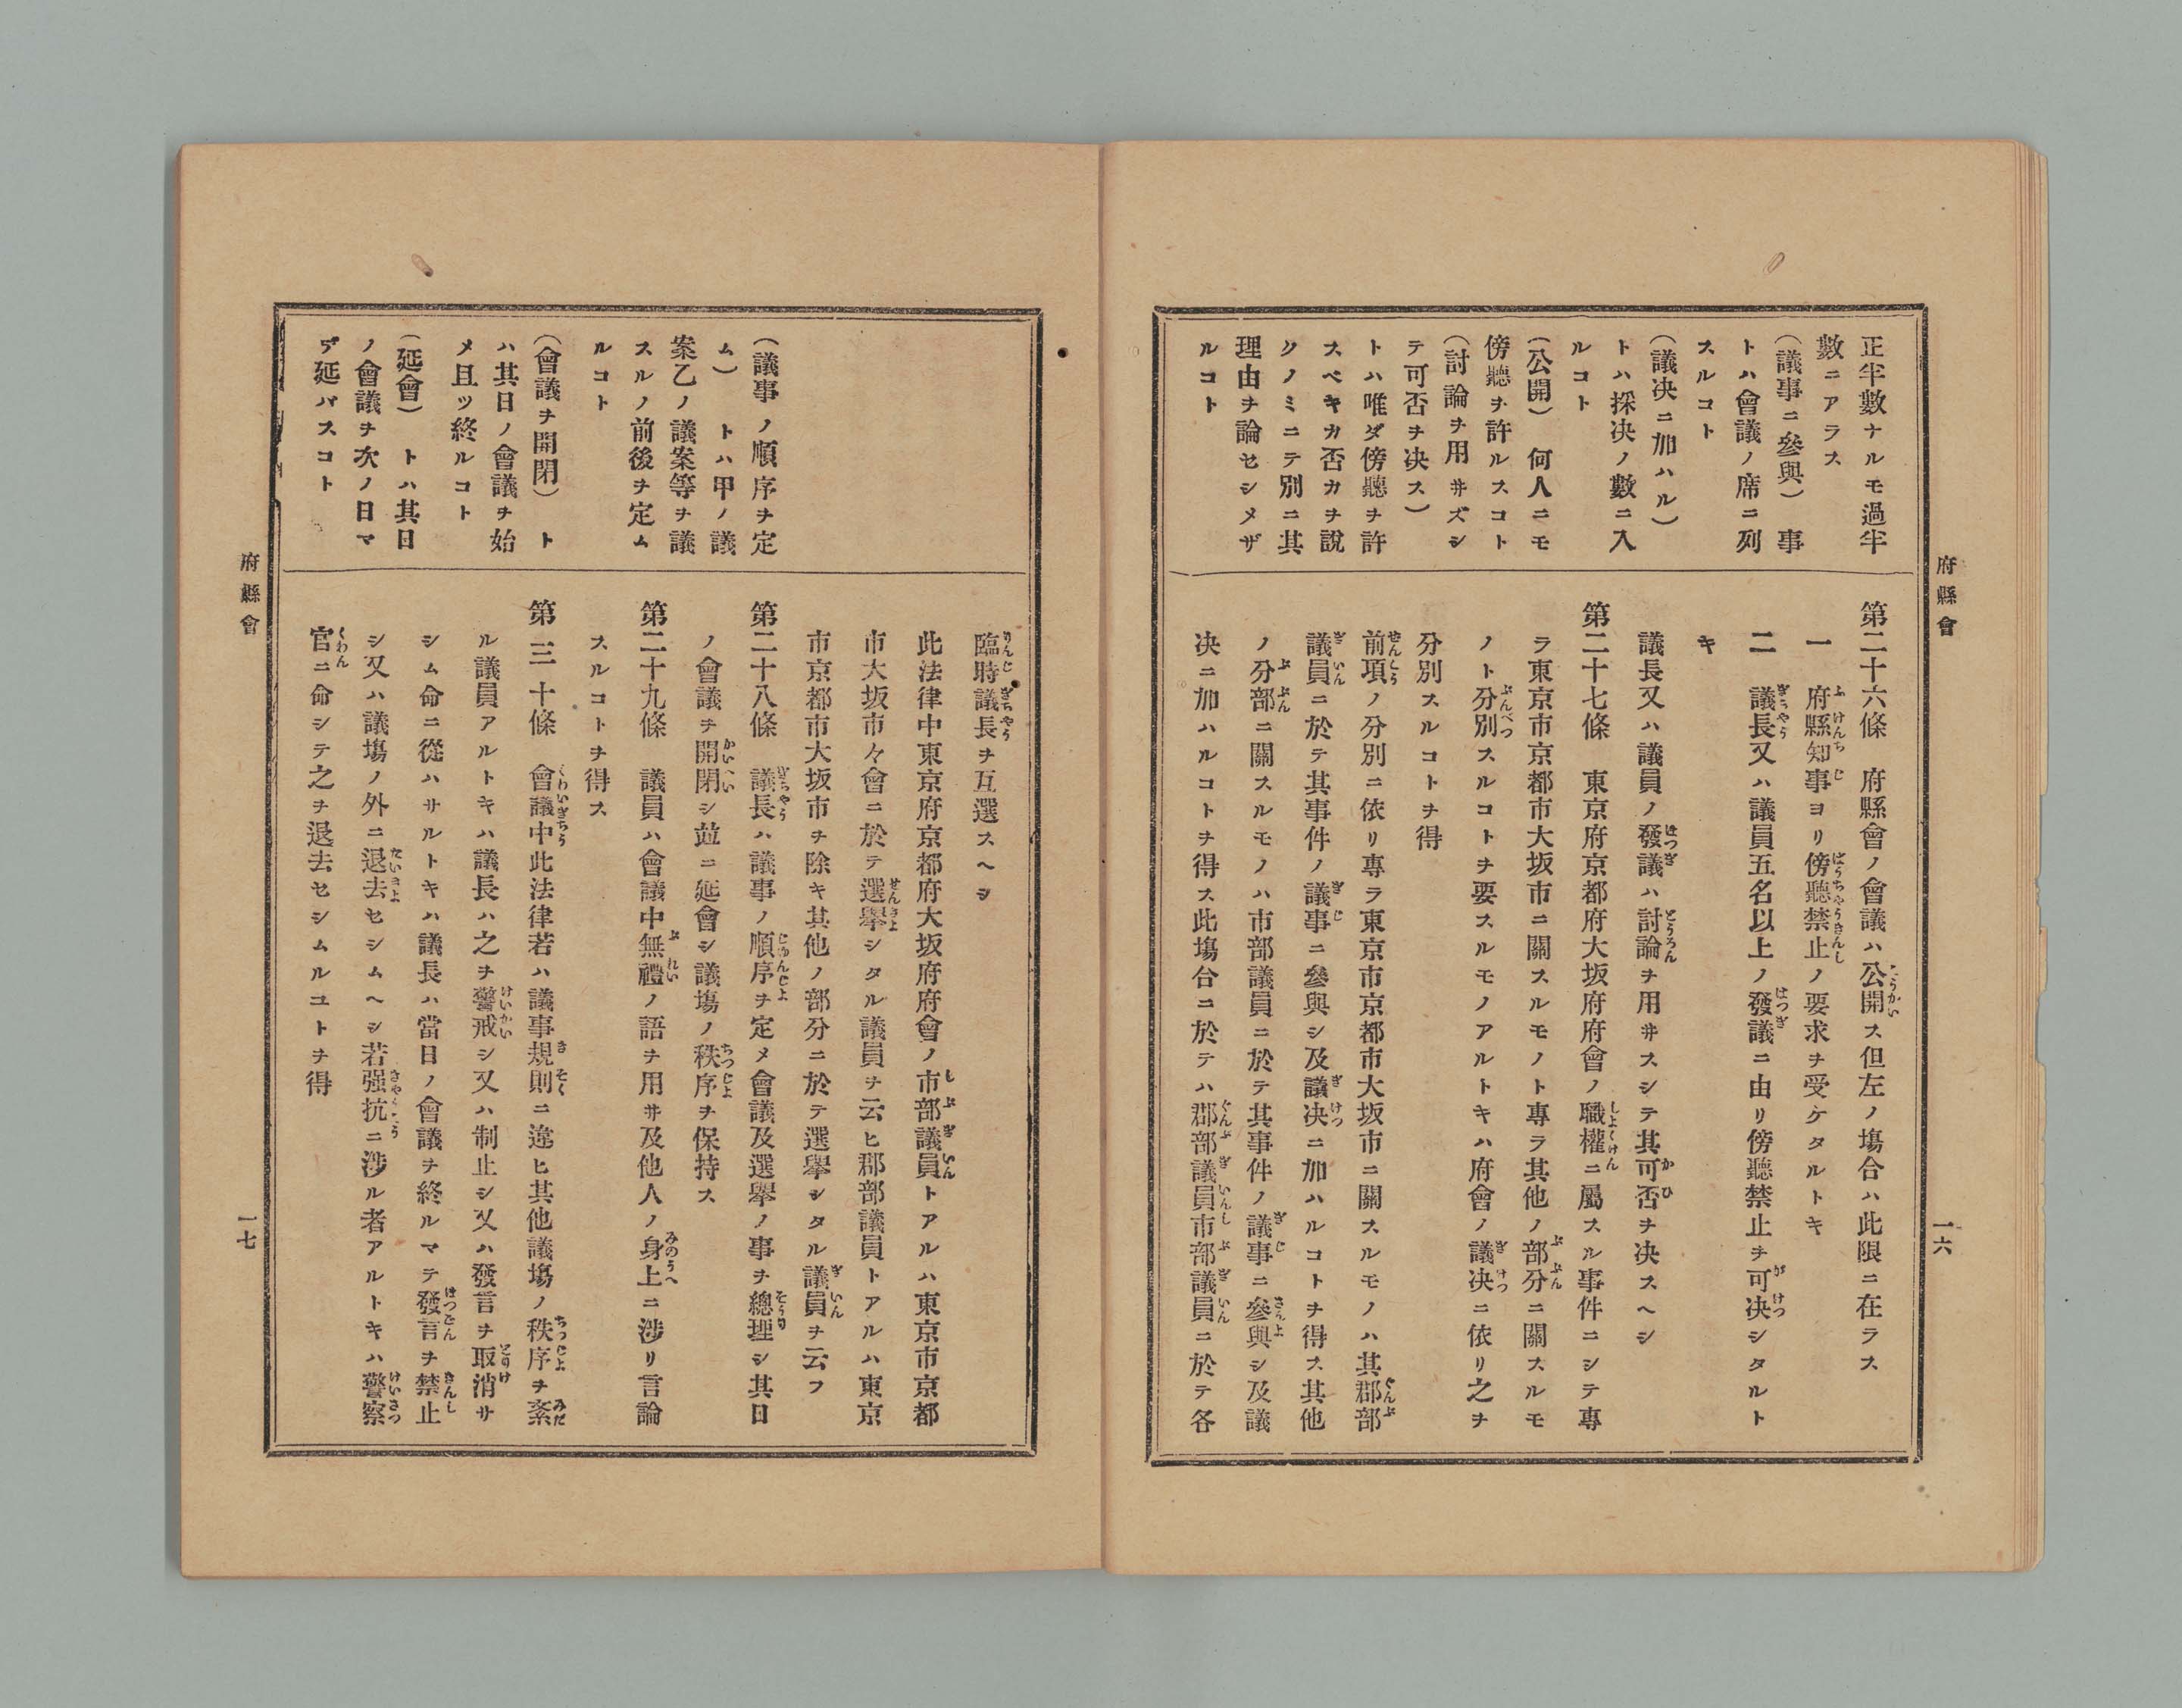 府縣會
一六
正半數ナルモ過半
數ニアラス
（議事ニ參與）　事
トハ會議ノ席ニ列
スルコト
（議决ニ加ハル）
トハ採决ノ數ニ入
ルコト
（公開）　何人ニモ
傍聽ヲ許ルスコト
（討論ヲ用ヰズシ
テ可否ヲ决ス）
トハ唯ダ傍聽ヲ許
スベキカ否カヲ說
クノミニテ別ニ其
理由ヲ論セシメザ
ルコト
第二十六條　府縣會ノ會議ハ公開ス但左ノ塲合ハ此限ニ在ラス
一　府縣知事ヨリ傍聽禁止ノ要求ヲ受ケタルトキ
二　議長又ハ議員五名以上ノ發議ニ由リ傍聽禁止ヲ可决シタルト
キ
議長又ハ議員ノ發議ハ討論ヲ用ヰスシテ其可否ヲ决スヘシ
第二十七條　東京府京都府大坂府府會ノ職權ニ屬スル事件ニシテ專
ラ東京市京都市大坂市ニ關スルモノト專ラ其他ノ部分ニ關スルモ
ノト分別スルコトヲ要スルモノアルトキハ府會ノ議决ニ依リ之ヲ
分別スルコトヲ得
前項ノ分別ニ依リ專ラ東京市京都市大坂市ニ關スルモノハ其郡部
議員ニ於テ其事件ノ議事ニ參與シ及議决ニ加ハルコトヲ得ス其他
ノ分部ニ關スルモノハ市部議員ニ於テ其事件ノ議事ニ參與シ及議
决ニ加ハルコトヲ得ス此塲合ニ於テハ郡部議員市部議員ニ於テ各
（議事ノ順序ヲ定
ム）　トハ甲ノ議
案乙ノ議案等ヲ議
スルノ前後ヲ定ム
ルコト
（會議ヲ開閉）　ト
ハ其日ノ會議ヲ始
メ且ツ終ルコト
（延會）　トハ其日
ノ會議ヲ次ノ日マ
デ延バスコト
臨時議長ヲ互選スヘシ
此法律中東京府京都府大坂府府會ノ市部議員トアルハ東京市京都
市大坂市々會ニ於テ選擧シタル議員ヲ云ヒ郡部議員トアルハ東京
市京都市大坂市ヲ除キ其他ノ部分ニ於テ選擧シタル議員ヲ云フ
第二十八條　議長ハ議事ノ順序ヲ定メ會議及選擧ノ事ヲ總理シ其日
ノ會議ヲ開閉シ並ニ延會シ議塲ノ秩序ヲ保持ス
第二十九條　議員ハ會議中無禮ノ語ヲ用ヰ及他人ノ身上ニ涉リ言論
スルコトヲ得ス
第三十條　會議中此法律若ハ議事規則ニ違ヒ其他議塲ノ秩序ヲ紊
ル議員アルトキハ議長ハ之ヲ警戒シ又ハ制止シ又ハ發言ヲ取消サ
シム命ニ從ハサルトキハ議長ハ當日ノ會議ヲ終ルマテ發言ヲ禁止
シ又ハ議塲ノ外ニ退去セシムヘシ若强抗ニ涉ル者アルトキハ警察
官ニ命シテ之ヲ退去セシムルコトヲ得
府縣會
一七